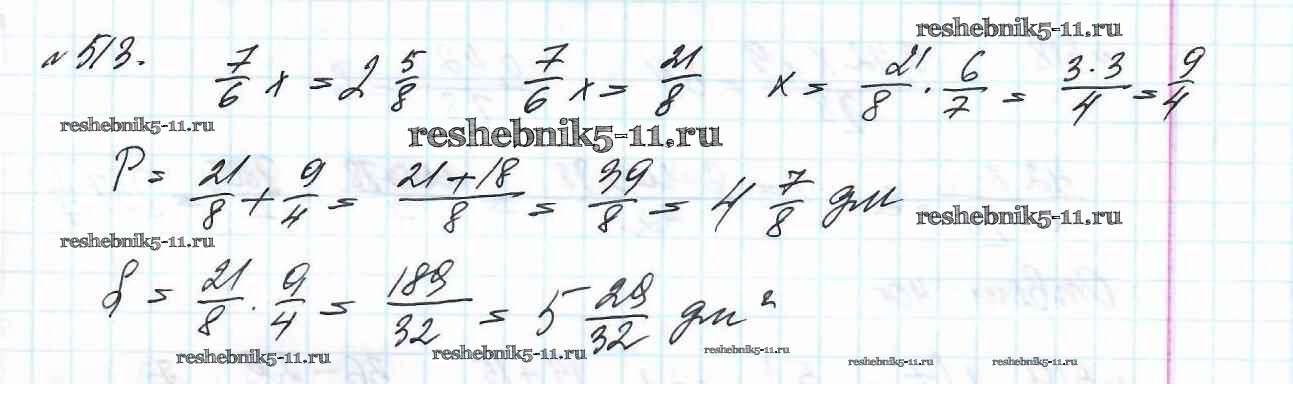 reshebnik5-11.ru
№513. 7/6 x = 2 5/8 7/6 x = 21/8 x = 21/8 · 6/7 = 3·3/4 = 9/4
reshebnik5-11.ru reshebnik5-11.ru
P = 21/8 + 9/4 = 21+18/8 = 39/8 = 4 7/8 дм
reshebnik5-11.ru reshebnik5-11.ru
S = 21/8 · 9/4 = 189/32 = 5 29/32 дм²
reshebnik5-11.ru reshebnik5-11.ru reshebnik5-11.ru reshebnik5-11.ru reshebnik5-11.ru